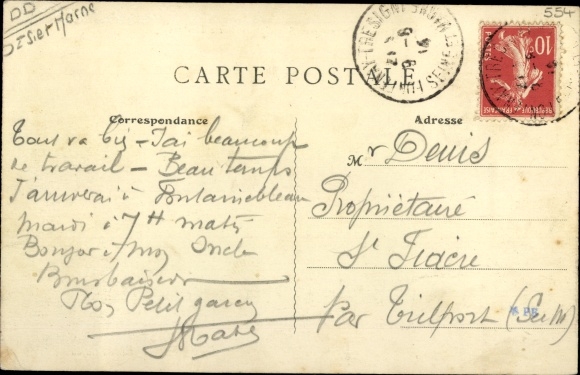 DD
Dt S et Marne
554
FONTENAY-TRESIGNY
SEINE ET MARNE
10
POSTES
REPUBLIQUE FRANÇAISE
CARTE POSTALE
Correspondance
Tout va bien - J'ai beaucoup
de travail - Beau temps
J'arriverai à Fontainebleau
mardi à 7H matin
Bonjour à mon Oncle
Bons baisers
Ton Petit garçon
Adresse
Mr Denis
Propriétaire
St Fiacre
Par Trilport (S et M)